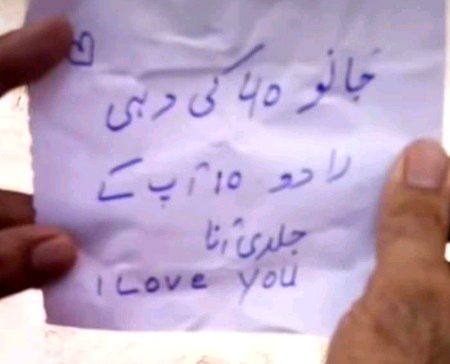 جانو 40 کی دہی
را دو 10 آپ کے
جلدی آنا
I LOVE YOU